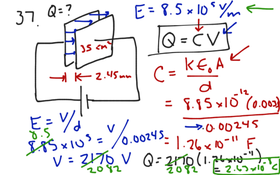 37. Q=?
E = 8.5 x 10⁵ V/m
Q = C V
35 cm²
2.45 mm
C = K ε₀ A / d
= 8.85 x 10⁻¹² (0.002
0.00245
= 1.26 x 10⁻¹¹ F
E = V/d
8.5
8.85 x 10⁵ = V/0.00245
V = 2170 V
2082
Q = 2170 (1.26 x 10⁻¹¹)
2082